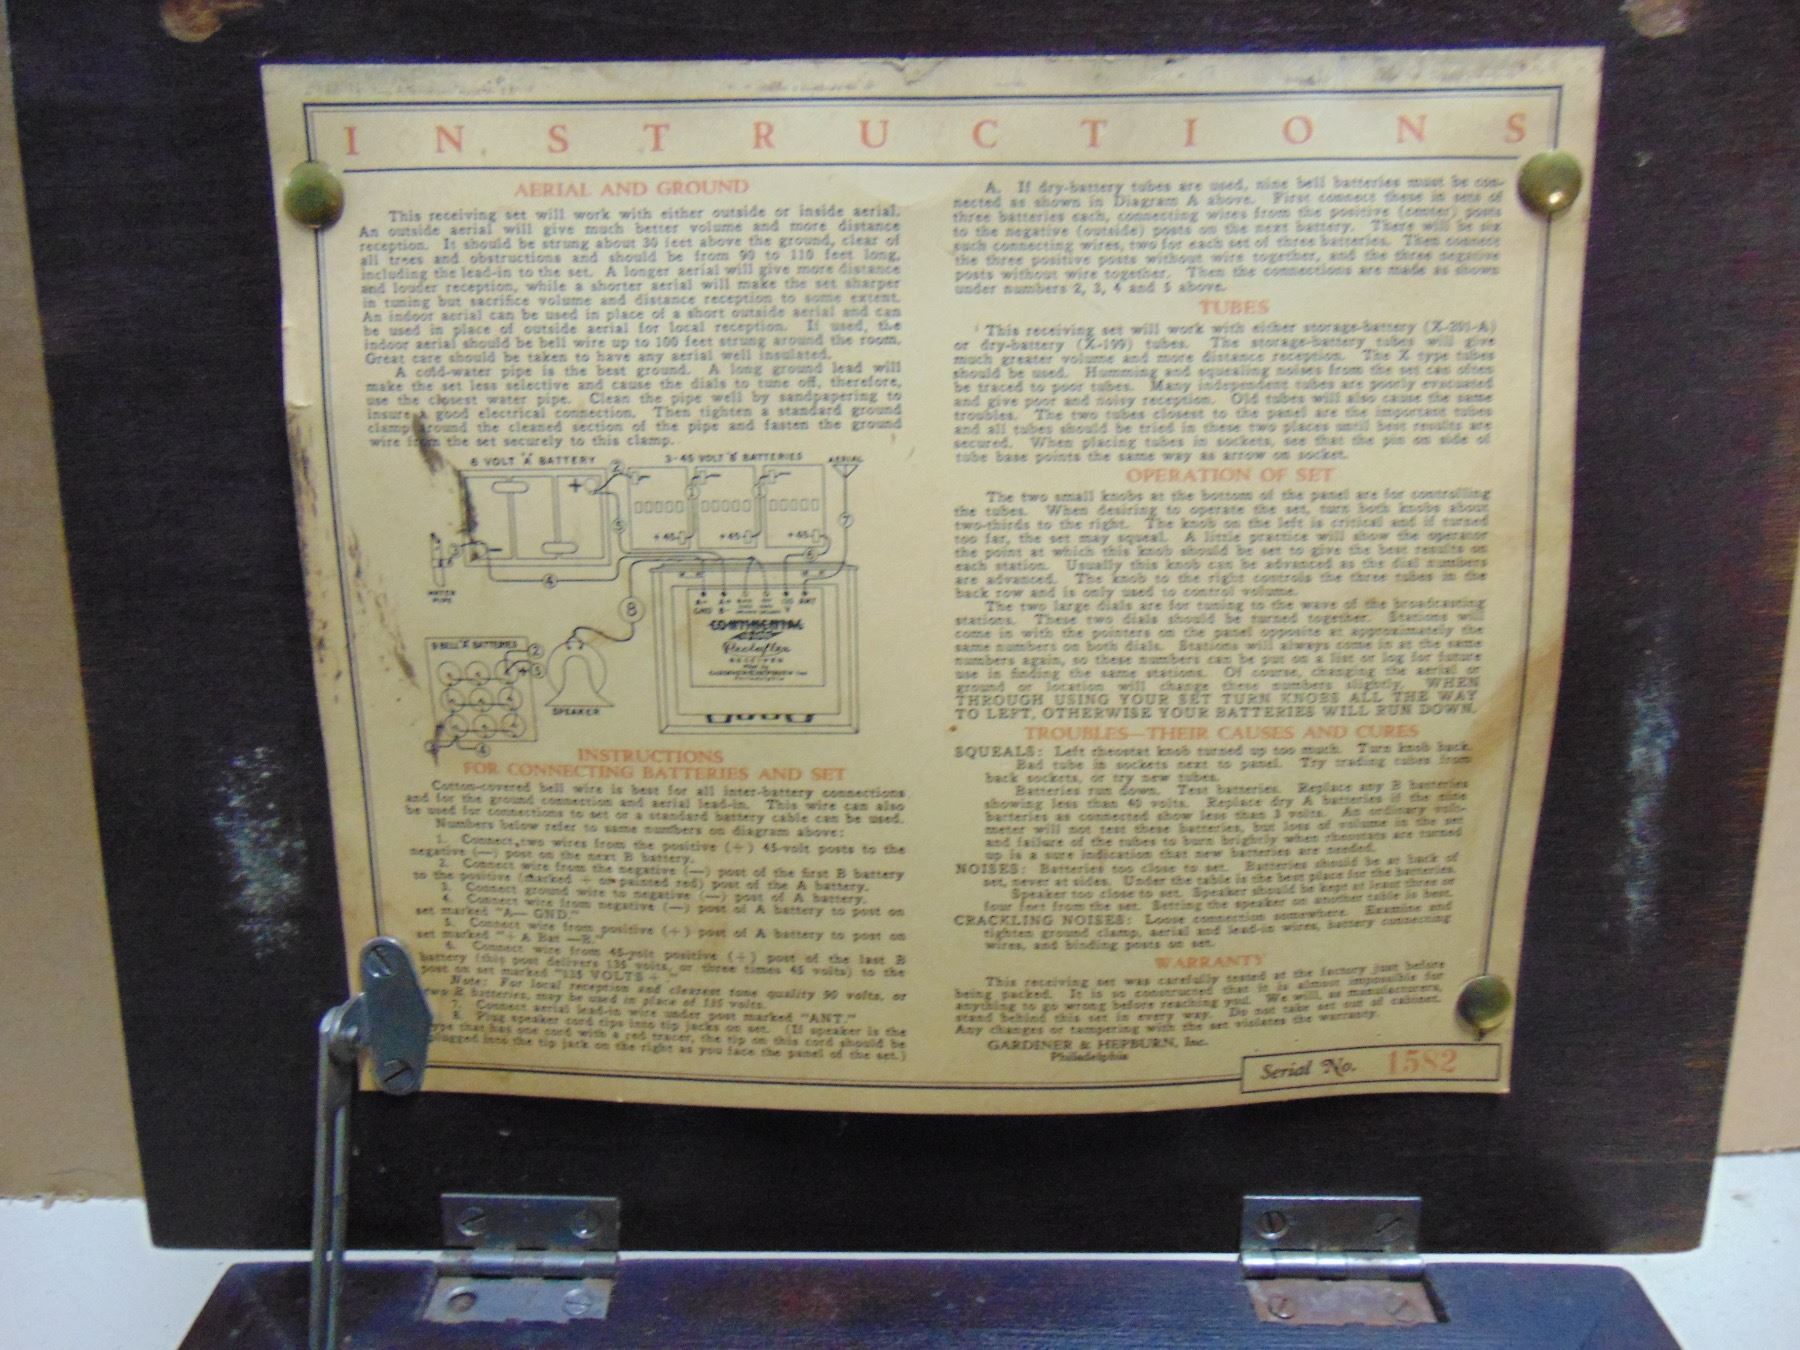 INSTRUCTIONS
AERIAL AND GROUND
This receiving set will work with either outside or inside aerial.
An outside aerial will give much better volume and more distance
reception. It should be strung about 30 feet above the ground, clear of
all trees and obstructions and should be from 90 to 110 feet long,
including the lead-in to the set. A longer aerial will give more distance
and louder reception, while a shorter aerial will make the set sharper
in tuning but sacrifice volume and distance reception to some extent.
An indoor aerial can be used in place of a short outside aerial and can
be used in place of outside aerial for local reception. If used, the
indoor aerial should be bell wire up to 100 feet strung around the room.
Great care should be taken to have any aerial well insulated.
A cold-water pipe is the best ground. A long ground lead will
make the set less selective and cause the dials to tune off, therefore,
use the closest water pipe. Clean the pipe well by sandpapering to
insure a good electrical connection. Then tighten a standard ground
clamp around the cleaned section of the pipe and fasten the ground
wire from the set securely to this clamp.
6 VOLT "A" BATTERY
3-45 VOLT "B" BATTERIES
AERIAL
+ 2
5 +45 +45 +45 7
3 - 6
4
WATER
PIPE
8
A- A+ ANT
GND B- V
CONTINENTAL
Rectoflex
RECEIVER
Philadelphia
9 BELL "A" BATTERIES
2
+ 5
4
SPEAKER
INSTRUCTIONS
FOR CONNECTING BATTERIES AND SET
Cotton-covered bell wire is best for all inter-battery connections
and for the ground connection and aerial lead-in. This wire can also
be used for connections to set or a standard battery cable can be used.
Numbers below refer to same numbers on diagram above:
1. Connect two wires from the positive (+) 45-volt posts to the
negative (—) post on the next B battery.
2. Connect wire from the negative (—) post of the first B battery
to the positive (marked + or painted red) post of the A battery.
3. Connect ground wire to negative (—) post of A battery.
4. Connect wire from negative (—) post of A battery to post on
set marked "A— GND."
5. Connect wire from positive (+) post of A battery to post on
set marked "+ A Bat —B."
6. Connect wire from 45-volt positive (+) post of the last B
battery (this post delivers 135 volts, or three times 45 volts) to the
post on set marked "135 VOLTS + "
Note: For local reception and clearest tone quality 90 volts, or
two B batteries, may be used in place of 135 volts.
7. Connect aerial lead-in wire under post marked "ANT."
8. Plug speaker cord tips into tip jacks on set. (If speaker is the
type that has one cord with a red tracer, the tip on this cord should be
plugged into the tip jack on the right as you face the panel of the set.)
A. If dry-battery tubes are used, nine bell batteries must be con-
nected as shown in Diagram A above. First connect these in sets of
three batteries each, connecting wires from the positive (center) posts
to the negative (outside) posts on the next battery. There will be six
such connecting wires, two for each set of three batteries. Then connect
the three positive posts without wire together, and the three negative
posts without wire together. Then the connections are made as shown
under numbers 2, 3, 4 and 5 above.
TUBES
This receiving set will work with either storage-battery (X-201-A)
or dry-battery (X-199) tubes. The storage-battery tubes will give
much greater volume and more distance reception. The X type tubes
should be used. Humming and squealing noises from the set can often
be traced to poor tubes. Many independent tubes are poorly evacuated
and give poor and noisy reception. Old tubes will also cause the same
troubles. The two tubes closest to the panel are the important tubes
and all tubes should be tried in these two places until best results are
secured. When placing tubes in sockets, see that the pin on side of
tube base points the same way as arrow on socket.
OPERATION OF SET
The two small knobs at the bottom of the panel are for controlling
the tubes. When desiring to operate the set, turn both knobs about
two-thirds to the right. The knob on the left is critical and if turned
too far, the set may squeal. A little practice will show the operator
the point at which this knob should be set to give the best results on
each station. Usually this knob can be advanced as the dial numbers
are advanced. The knob to the right controls the three tubes in the
back row and is only used to control volume.
The two large dials are for tuning to the wave of the broadcasting
stations. These two dials should be turned together. Stations will
come in with the pointers on the panel opposite at approximately the
same numbers on both dials. Stations will always come in at the same
numbers again, so these numbers can be put on a list or log for future
use in finding the same stations. Of course, changing the aerial or
ground or location will change these numbers slightly. WHEN
THROUGH USING YOUR SET TURN KNOBS ALL THE WAY
TO LEFT, OTHERWISE YOUR BATTERIES WILL RUN DOWN.
TROUBLES—THEIR CAUSES AND CURES
SQUEALS: Left rheostat knob turned up too much. Turn knob back.
Bad tube in sockets next to panel. Try trading tubes from
back sockets, or try new tubes.
Batteries run down. Test batteries. Replace any B batteries
showing less than 40 volts. Replace dry A batteries if the nine
batteries as connected show less than 3 volts. An ordinary volt-
meter will not test these batteries, but loss of volume in the set
and failure of the tubes to burn brightly when rheostats are turned
up is a sure indication that new batteries are needed.
NOISES: Batteries too close to set. Batteries should be at back of
set, never at sides. Under the table is the best place for the batteries.
Speaker too close to set. Speaker should be kept at least three or
four feet from the set. Setting the speaker on another table is best.
CRACKLING NOISES: Loose connection somewhere. Examine and
tighten ground clamp, aerial and lead-in wires, battery connecting
wires, and binding posts on set.
WARRANTY
This receiving set was carefully tested at the factory just before
being packed. It is so constructed that it is almost impossible for
anything to go wrong before reaching you. We will, as manufacturers,
stand behind this set in every way. Do not take set out of cabinet.
Any changes or tampering with the set violates the warranty.
GARDINER & HEPBURN, Inc.
Philadelphia
Serial No. 1582